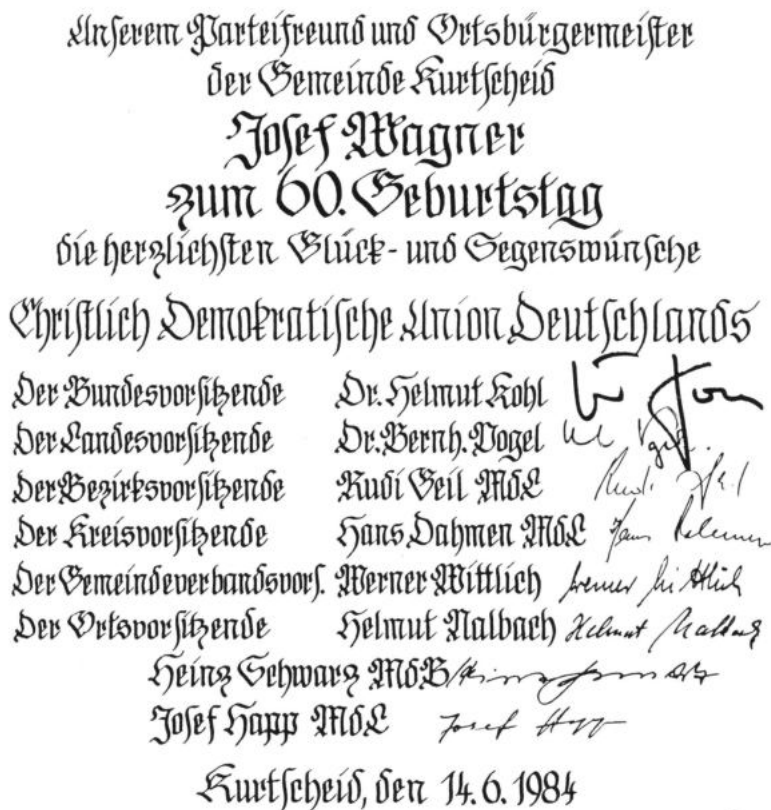 Unserem Parteifreund und Ortsbürgermeister
der Gemeinde Kurtscheid
Josef Wagner
zum 60. Geburtstag
die herzlichsten Glück- und Segenswünsche
Christlich Demokratische Union Deutschlands
Der Bundesvorsitzende Dr. Helmut Kohl
Der Landesvorsitzende Dr. Bernh. Vogel
Der Bezirksvorsitzende Rudi Geil MdL Rudi Geil
Der Kreisvorsitzende Hans Dahmen MdL Hans Dahmen
Der Gemeindeverbandsvors. Werner Wittlich Werner Wittlich
Der Ortsvorsitzende Helmut Nalbach Helmut Nalbach
Heinz Schwarz MdB Heinz Schwarz
Josef Happ MdL Josef Happ
Kurtscheid, den 14.6.1984